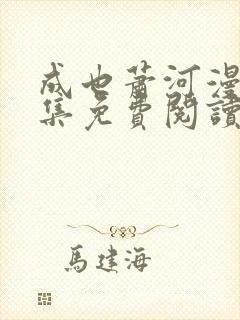 成也蕭河漫
集免費閱讀
馬建海